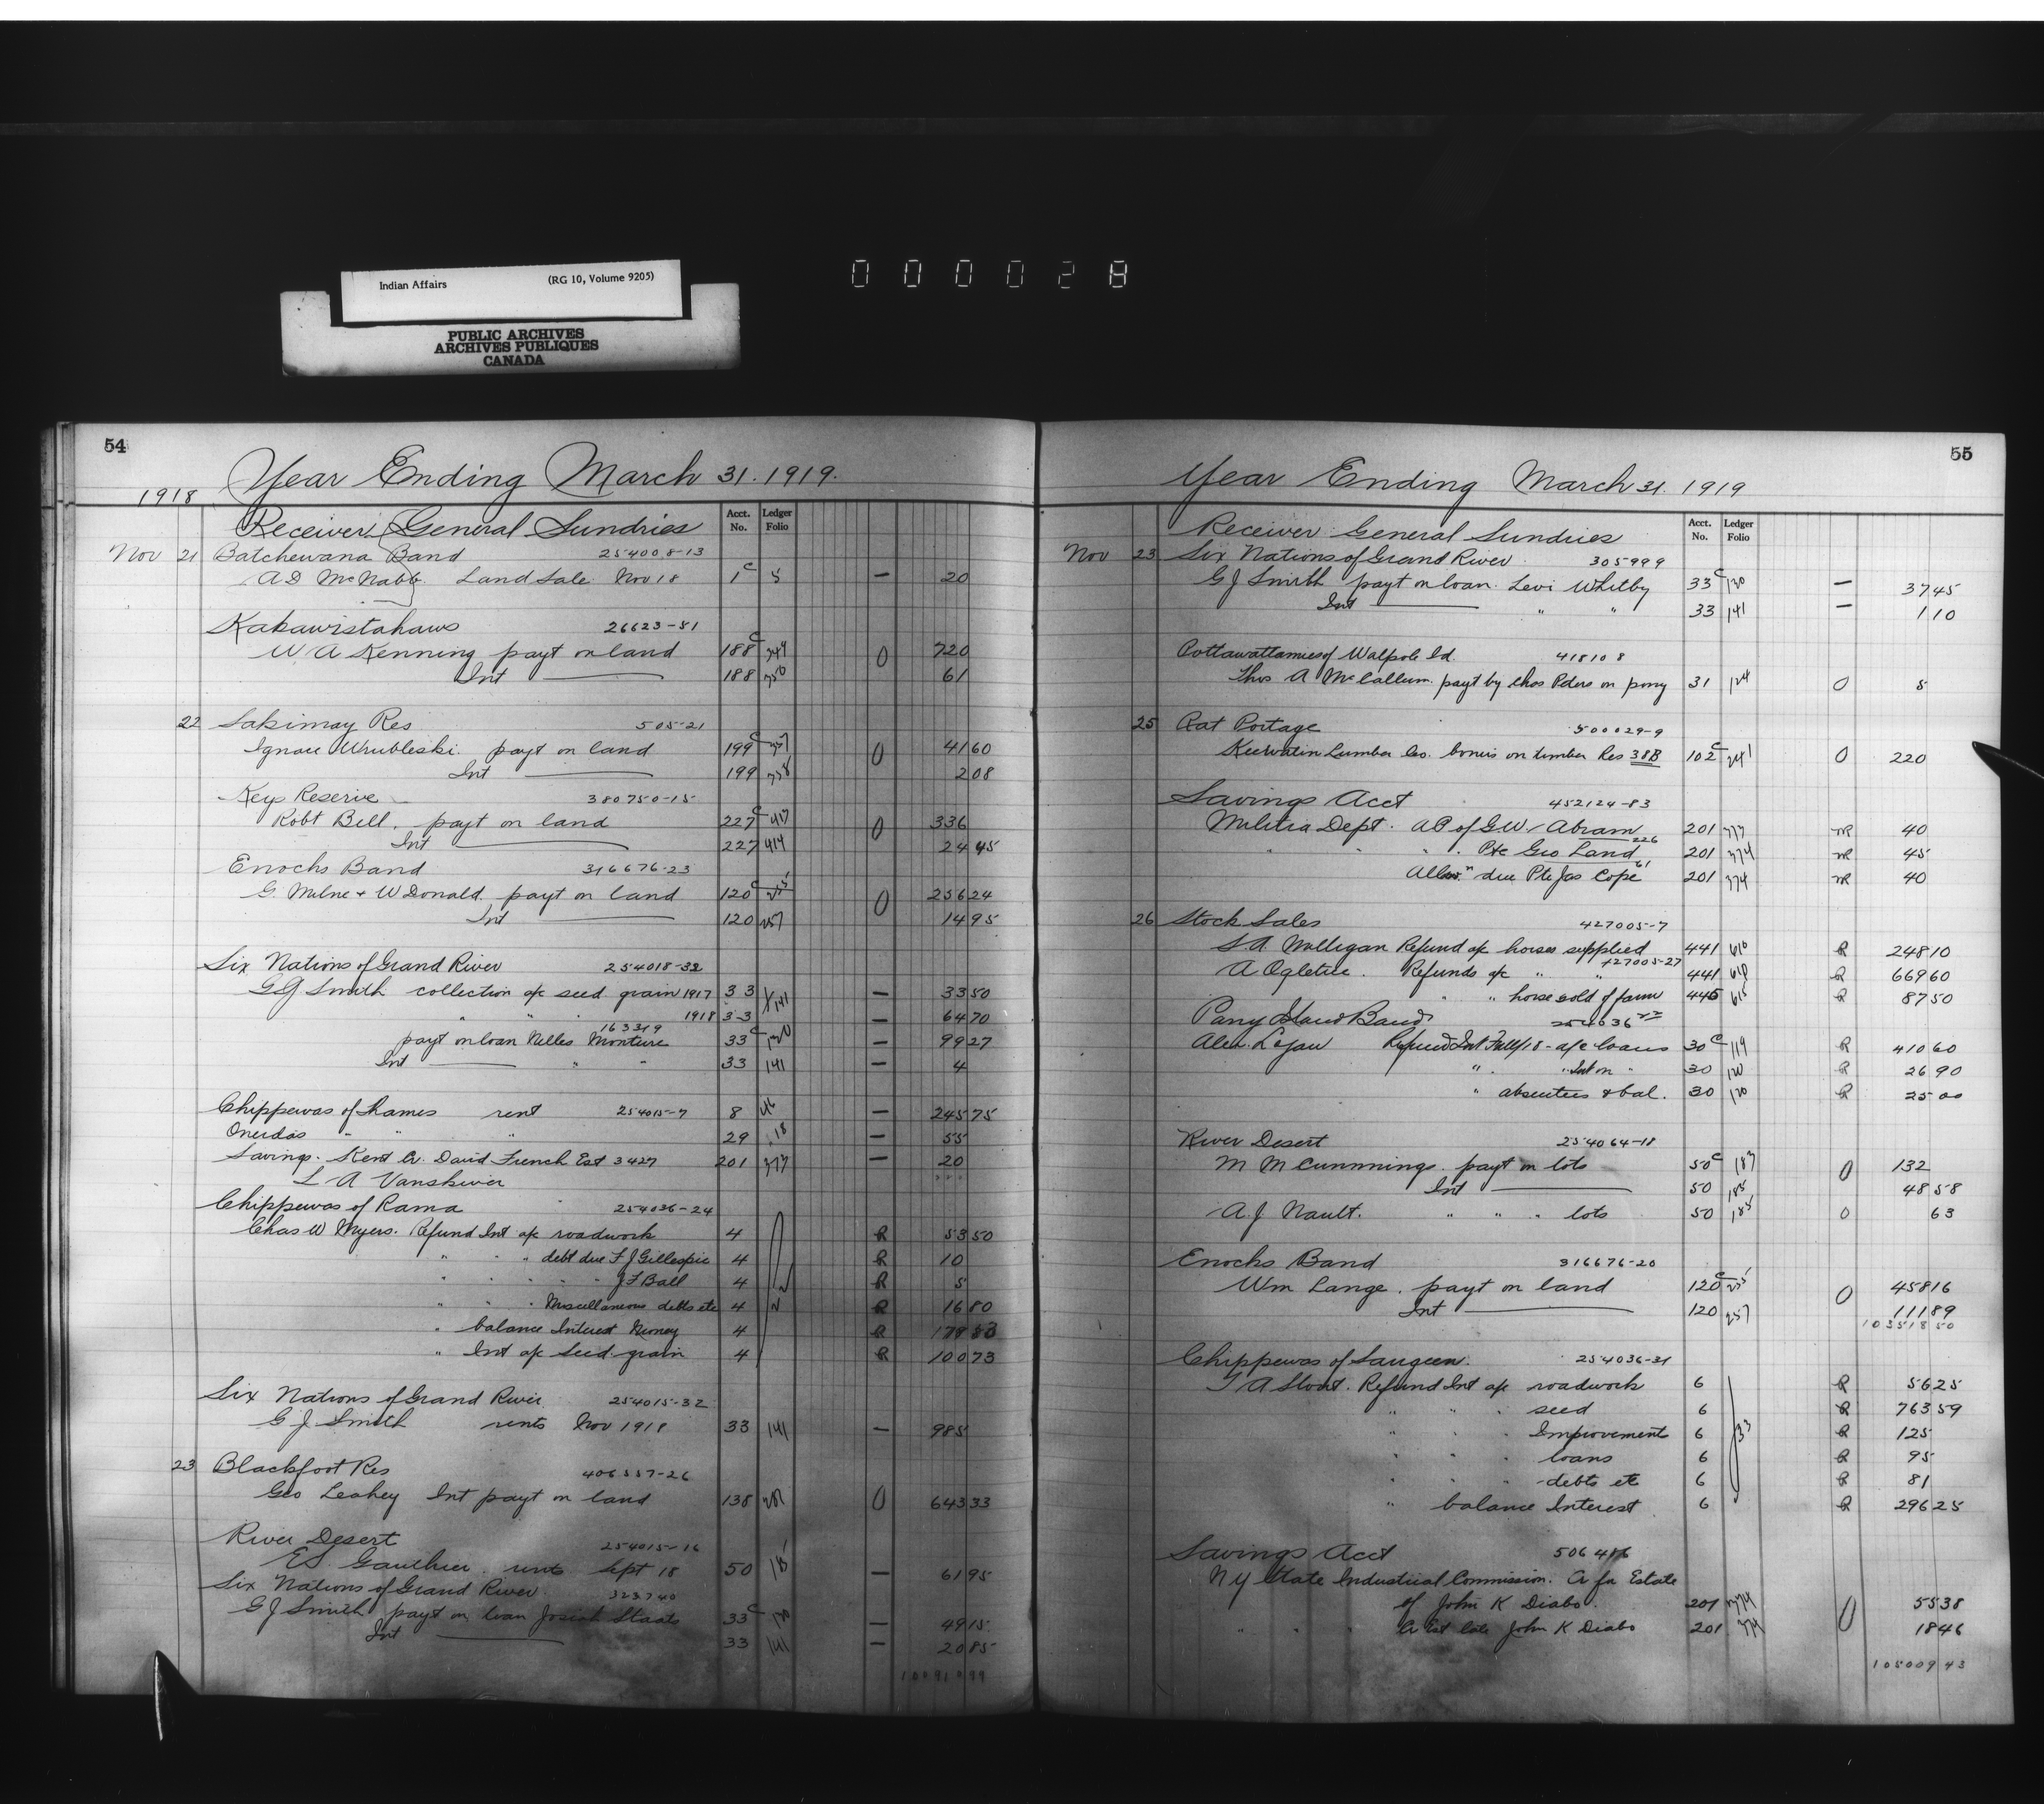 Indian Affairs (RG 10, Volume 9205)
PUBLIC ARCHIVES
ARCHIVES PUBLIQUES
CANADA
000028
54
Year Ending March 31. 1919.
1918
Receiver General Sundries Acct. No. Ledger Folio
Nov 21 Batchewana Band 254008-13
A D McNabb. Land Sale Nov 18 1c 5 — 20
Kakawistahaws 26623-51
W A Kenning payt on land 188c 249 0 720
Int 188 350 61
22 Sakimay Res 505-21
Ignace Wrubleski. payt on land 199c 0 4160
Int 199 208
Keys Reserve 380750-15
Robt Bell. payt on land 227c 417 0 336
Int 227 414 2445
Enochs Band 316676-23
G. Milne + W Donald payt on land 120c 255 0 25624
Int 120 257 1495
Six Nations of Grand River 254018-32
G J Smith collection a/c seed grain 1917 33 141 — 3350
" " " 1918 33 — 6470
163319
payt on loan Nelles Monture 33c 130 — 9927
Int " " 33 141 — 4
Chippewas of Thames rent 254015-7 8 46 — 24575
Oneidas " " " 29 118 — 55
Savings. Rent Cr. David French Est 3427 201 373 — 20
L A Vanskiver
Chippewas of Rama 254036-24
Chas W Myers. Refund Int a/c roadwork 4 R 5350
" " " debt due F J Gillespie 4 R 10
" " " " J F Ball 4 R 5
" " " Miscellaneous debts etc 4 R 1680
" balance Interest Money 4 R 17983
" Int a/c Seed grain 4 R 10073
Six Nations of Grand River 254015-32
G J Smith rents Nov 1918 33 141 — 985
23 Blackfoot Res 406557-26
Geo Leahey Int payt on land 138 281 0 64333
River Desert 254015-16
E S Gauthier rents Sept 18 50 185 — 6195
Six Nations of Grand River 323740
G J Smith payt on loan Josiah Staats 33c 130 — 4915
Int 33 141 — 2085
10091099
55
Year Ending March 31. 1919
Receiver General Sundries Acct. No. Ledger Folio
Nov 23 Six Nations of Grand River 305999
G J Smith payt on loan Levi Whitby 33c 130 — 3745
Int " " 33 141 — 110
Pottawattamies of Walpole Id. 418108
Thos A McCallum payt by Chas Peters on pony 31 124 0 5
25 Rat Portage 500029-9
Keewatin Lumber Co. bonus on timber Res 38B 102c 241 0 220
Savings Acct 452124-83
Militia Dept. AP of G.W. Abram 201 373 R 40
226
" " " Pte Geo Land 201 374 R 45
61
Allow. due Pte Jas Cope 201 374 R 40
26 Stock Sales 427005-7
S A. Milligan Refund a/c horses supplied 441 610 R 24810
427005-27
A Ogletree. Refunds a/c " " 441 610 R 66960
" " horse sold of farm 445 615 R 8750
Parry Island Band 254036
Alex. Logan Refund Int Fall/18 - a/c loans 30c 119 R 41060
" " Int on " 30 120 R 2690
" absentees & bal. 30 120 R 2500
River Desert 254064-18
M M Cummings payt on lots 50c 183 0 132
Int 50 185 4858
A. J. Nault. " " " lots 50 185 0 63
Enochs Band 316676-20
Wm Lange. payt on land 120c 255 0 45816
Int 120 257 11189
10351850
Chippewas of Saugeen. 254036-31
T A Stout. Refund Int a/c roadwork 6 R 5625
" " " seed 6 R 76359
" " " Improvement 6 33 R 125
" " " loans 6 R 95
" " " debts etc 6 R 81
" balance Interest 6 R 29625
Savings Acct 506416
N Y State Industrial Commission. Cr for Estate
of John K Diabo. 201 374 0 5538
" " " Cr Est late John K Diabo 201 374 1846
10500943